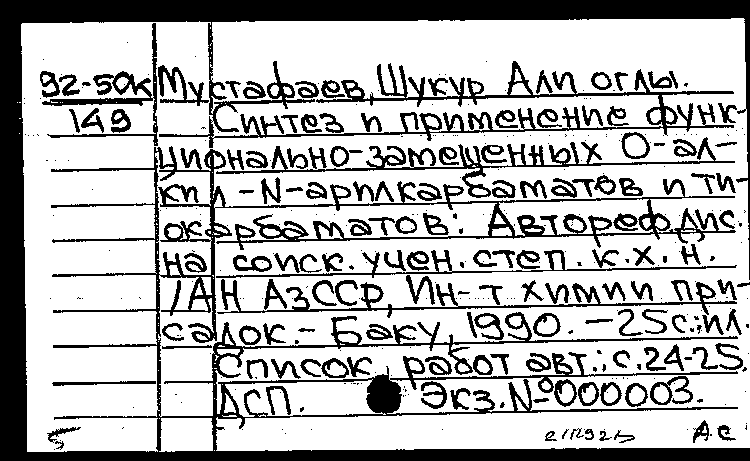 92-50к Мустафаев, Шукур Али оглы.
149 Синтез и применение функ-
ционально-замещенных О-ал-
кил-N-арилкарбаматов и ти-
окарбаматов: Автореф. дис.
на соиск. учен. степ. к.х.н.
/АН АзССР, Ин-т химии при-
садок.- Баку, 1990. -25с.:ил.
Список работ авт.: с.24-25.
ДСП. Экз.№000003.
5 Ас